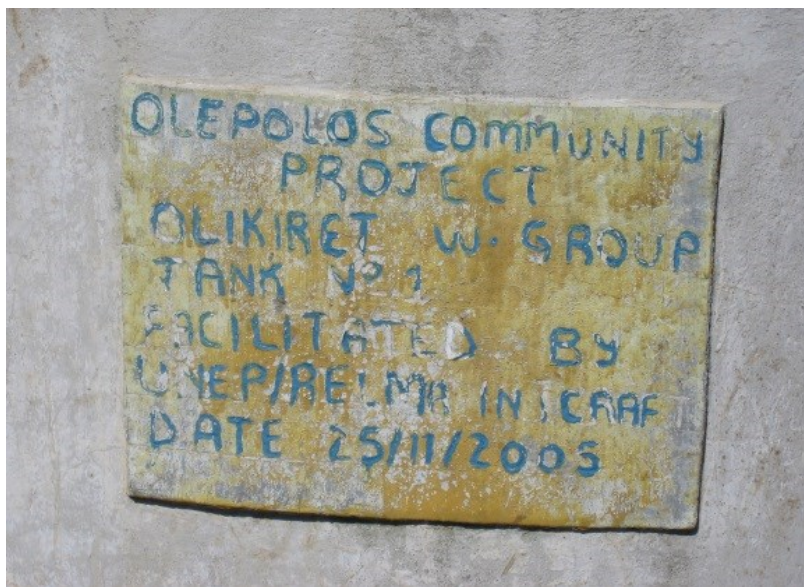 OLEPOLOS COMMUNITY
PROJECT
OLIKIRET W. GROUP
TANK Nº 1
FACILITATED BY
UNEP/RELMA IN ICRAF
DATE 25/11/2005